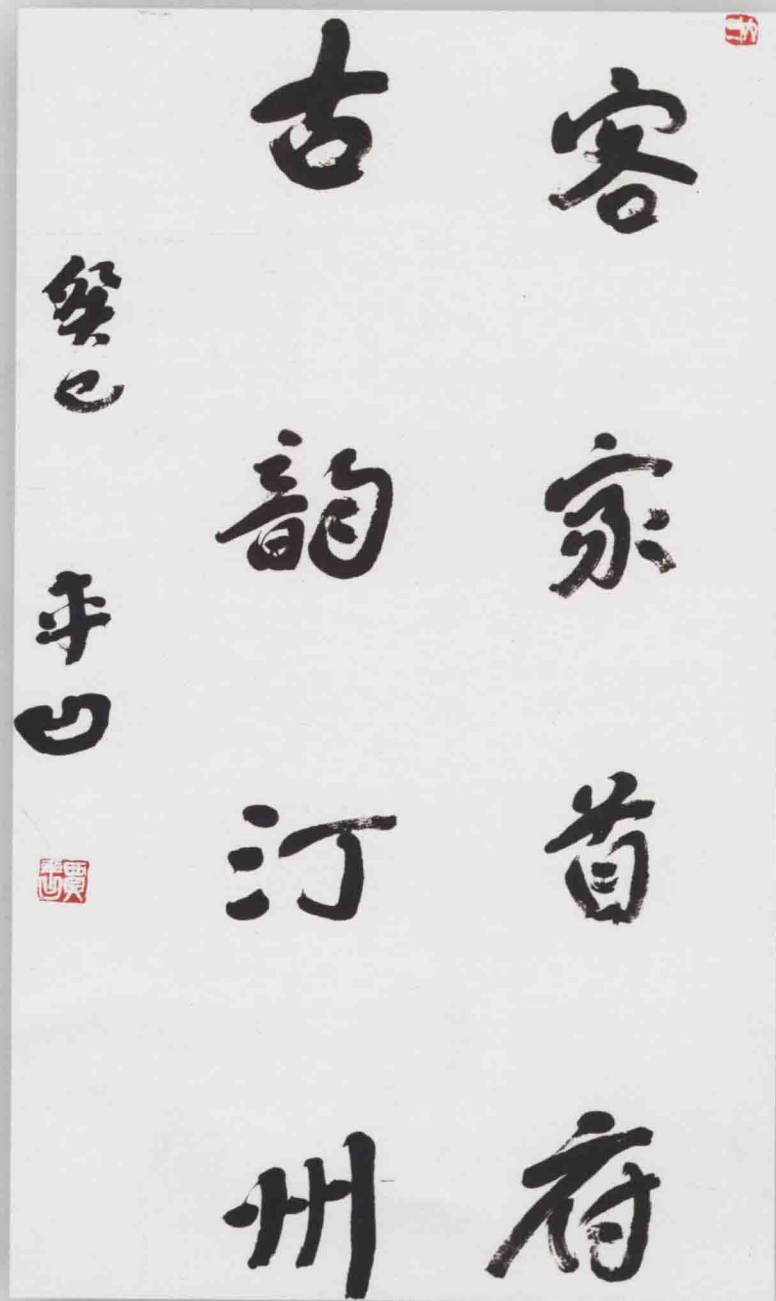 客家首府
古韵汀州
癸巳 平凹